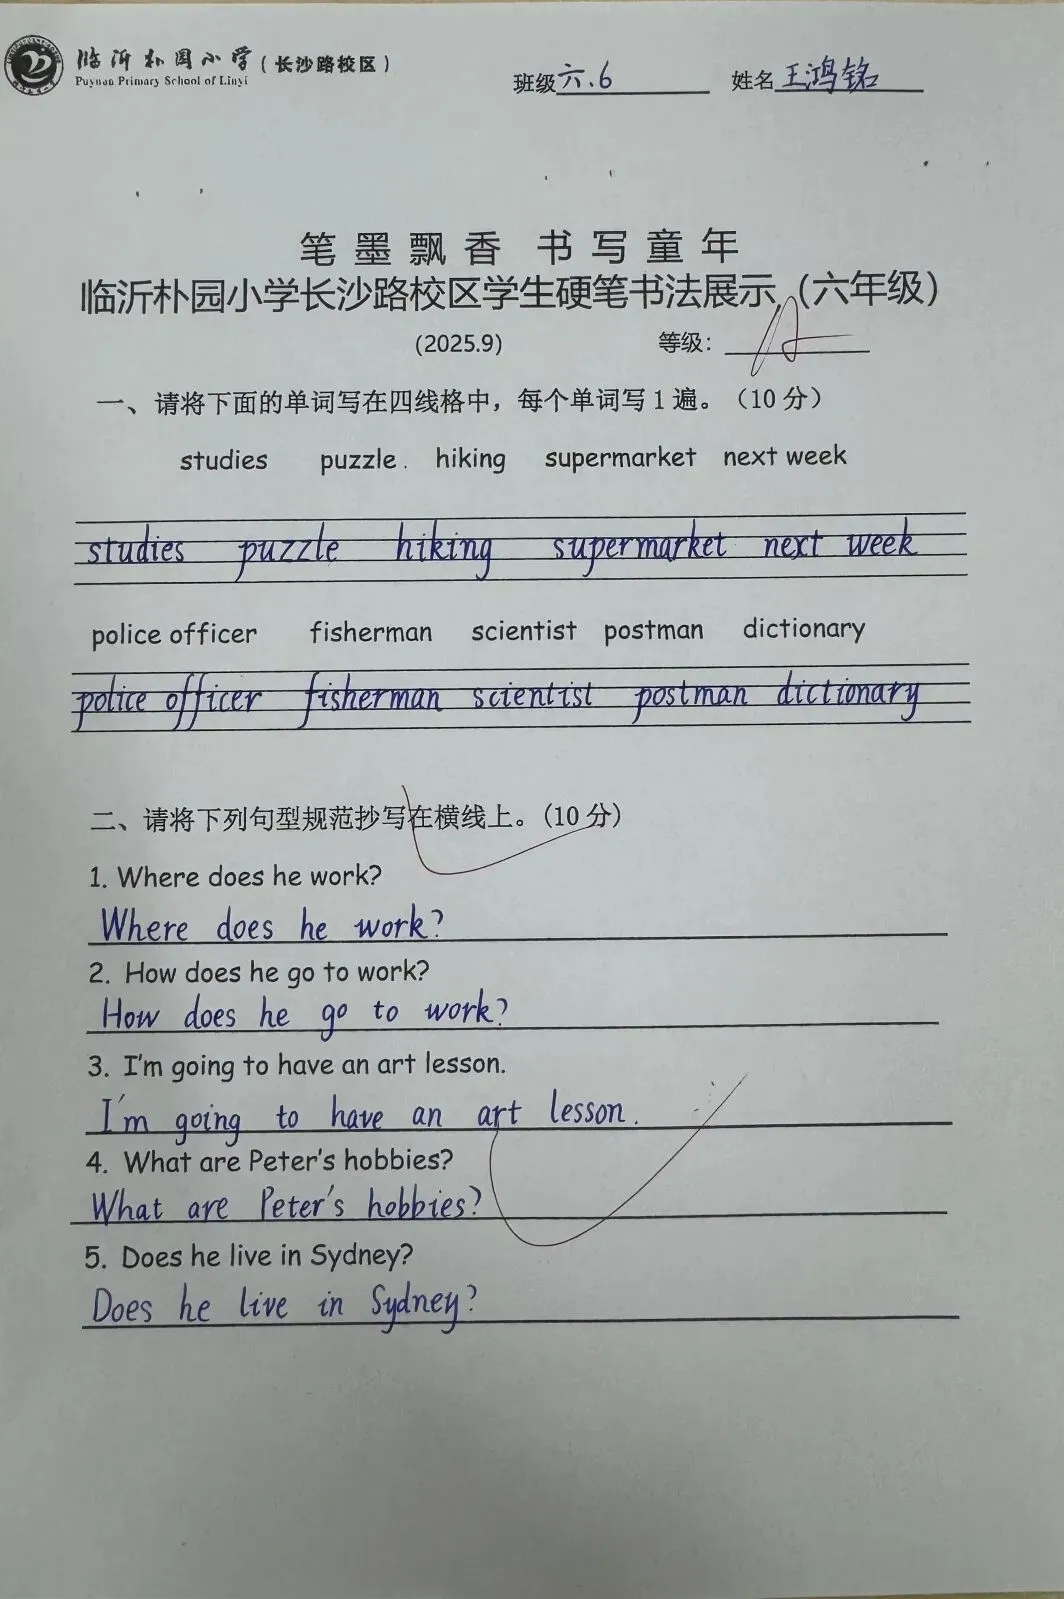 临沂朴园小学(长沙路校区)
Puyuan Primary School of Linyi
班级 六.6 姓名 王鸿铭
笔墨飘香 书写童年
临沂朴园小学长沙路校区学生硬笔书法展示（六年级）
(2025.9) 等级: A
一、请将下面的单词写在四线格中，每个单词写1遍。（10分）
studies puzzle. hiking supermarket next week
studies puzzle hiking supermarket next week
police officer fisherman scientist postman dictionary
police officer fisherman scientist postman dictionary
二、请将下列句型规范抄写在横线上。(10分)
1. Where does he work?
Where does he work?
2. How does he go to work?
How does he go to work?
3. I'm going to have an art lesson.
I'm going to have an art lesson.
4. What are Peter's hobbies?
What are Peter's hobbies?
5. Does he live in Sydney?
Does he live in Sydney?